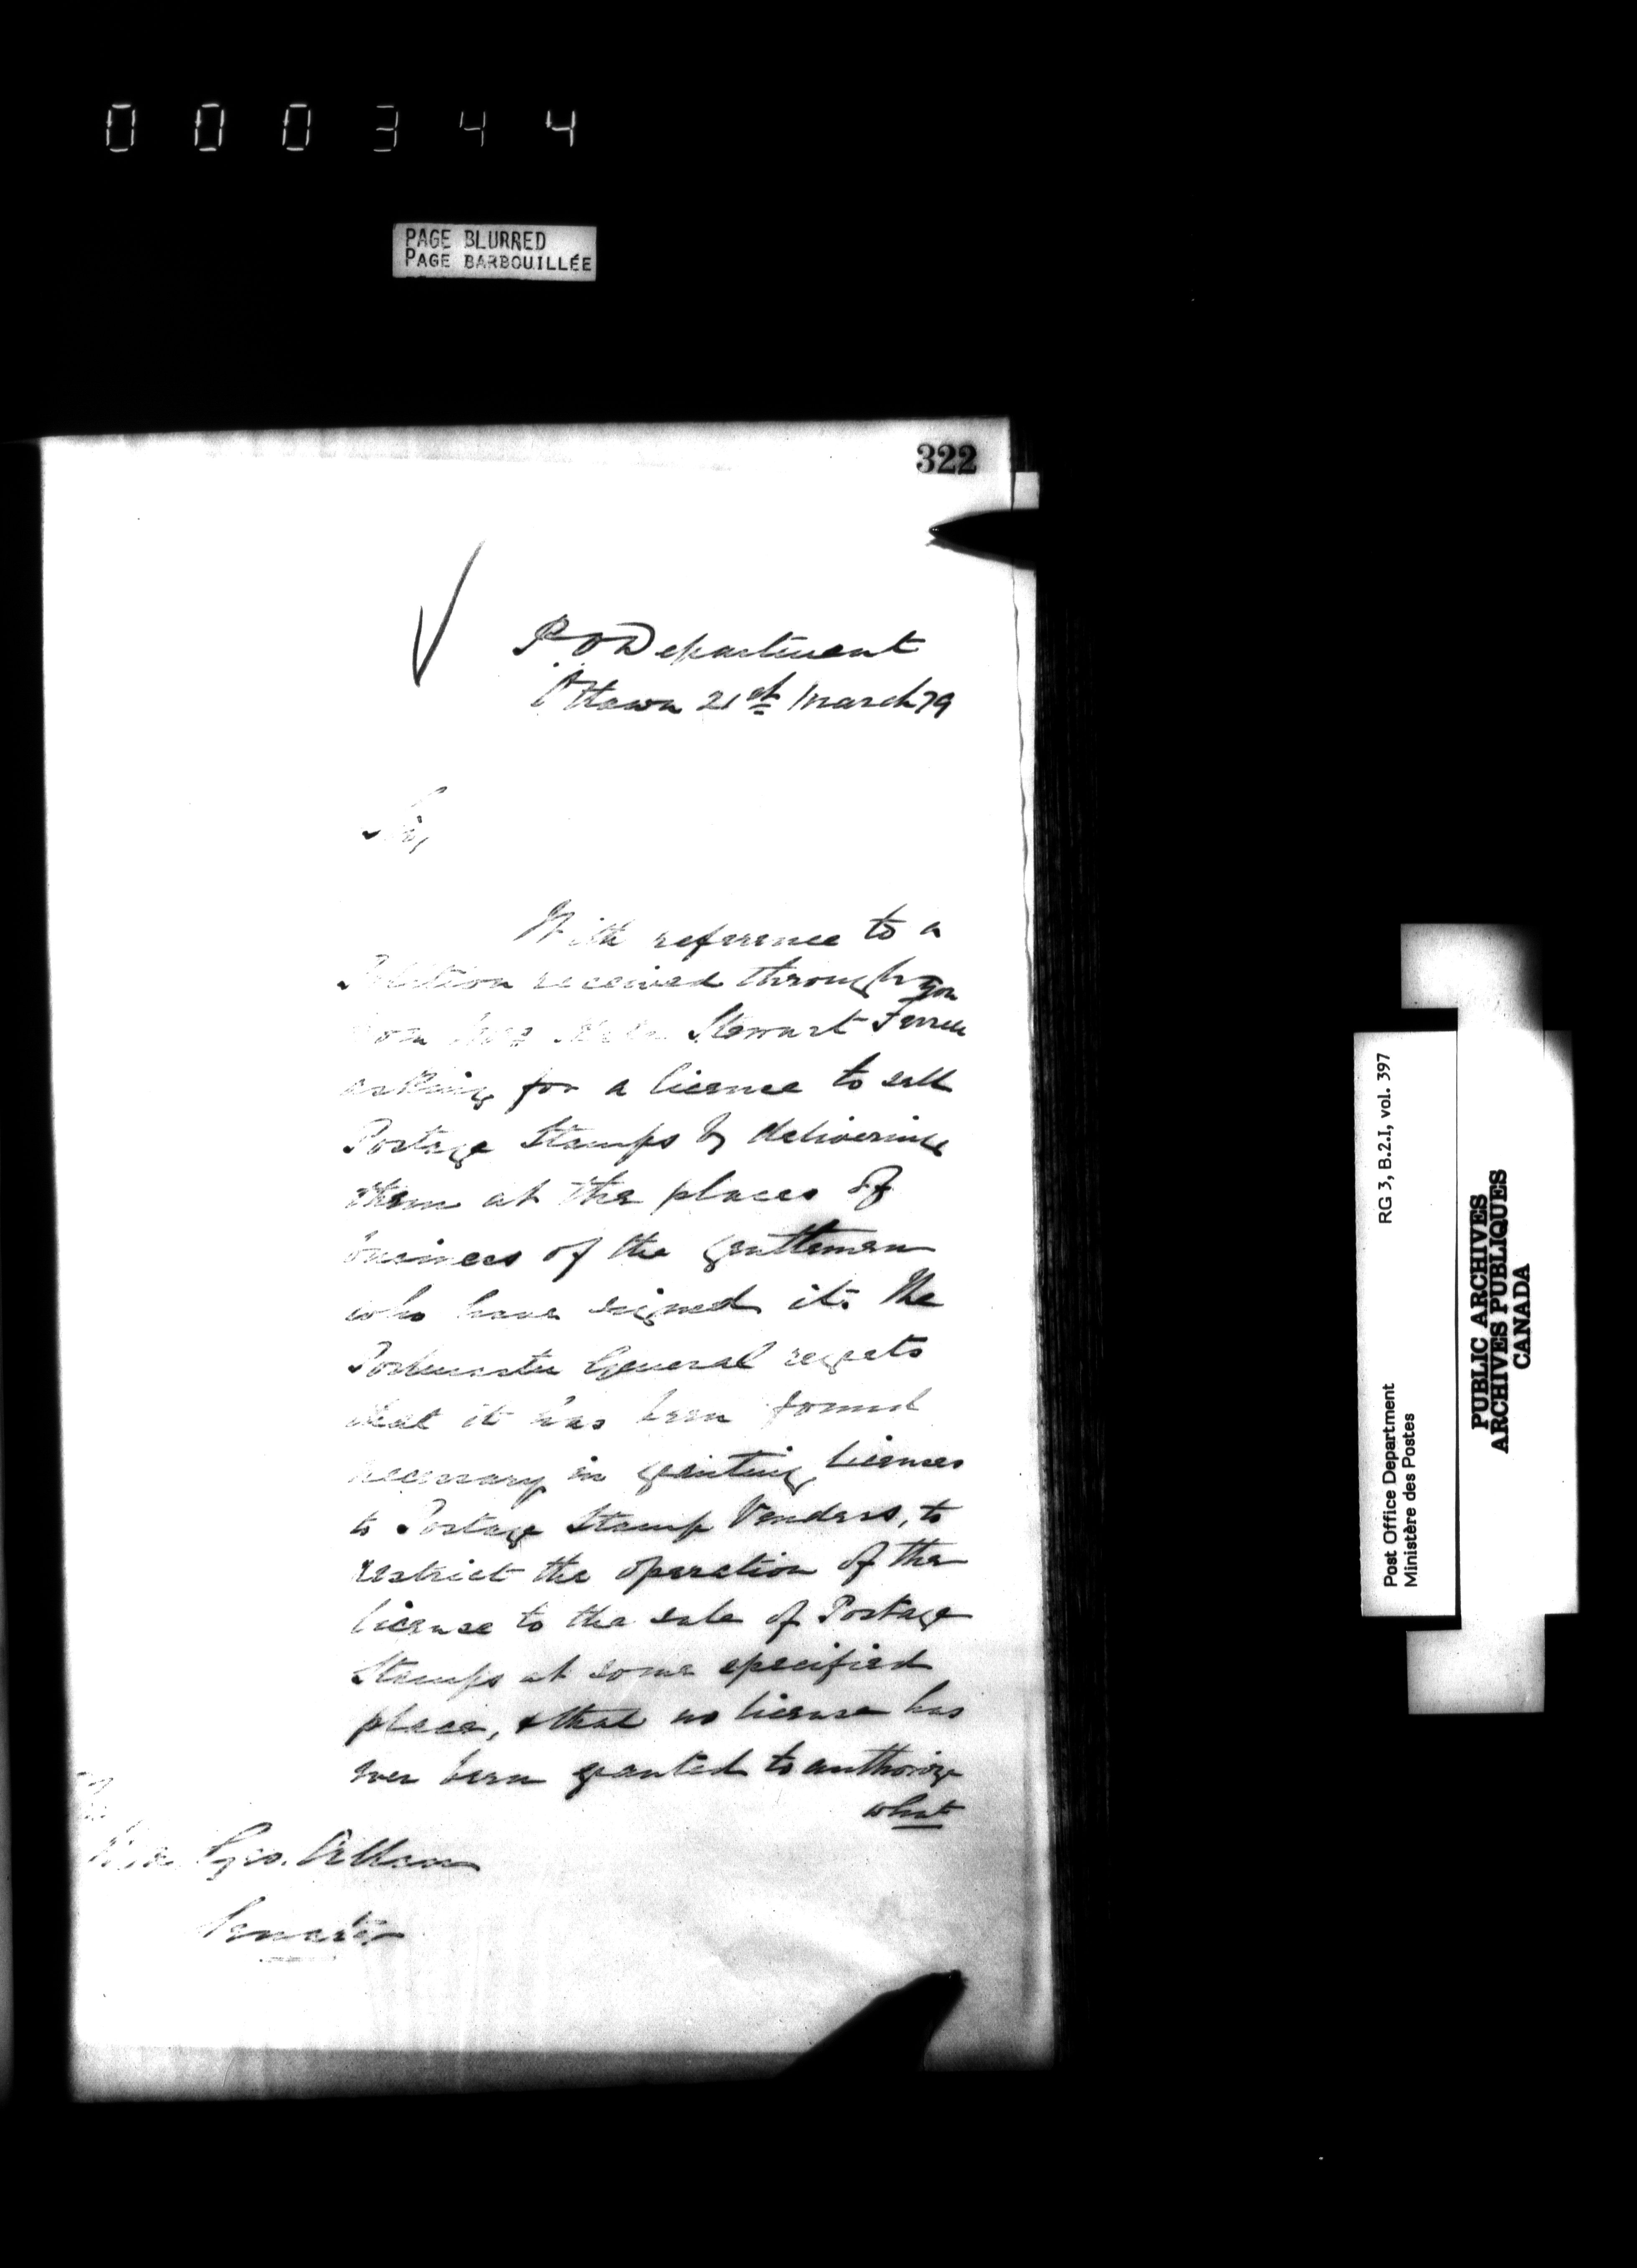 000344
PAGE BLURRED
PAGE BARBOUILLÉE
322
P O Department
Ottawa 21st March 79
Sir,
With reference to a
Petition received through you
from Stewart
asking for a license to sell
Postage Stamps by delivering
them at the places of
business of the gentlemen
who have signed it. The
Postmaster General regrets
that it has been found
necessary in granting licenses
to Postage Stamp Venders, to
restrict the operation of the
license to the sale of Postage
Stamps at some specified
place, & that no license has
ever been granted to authorize
what
Hon. Geo. Allan
Senator
RG 3, B.2.I, vol. 397
Post Office Department
Ministère des Postes
PUBLIC ARCHIVES
ARCHIVES PUBLIQUES
CANADA